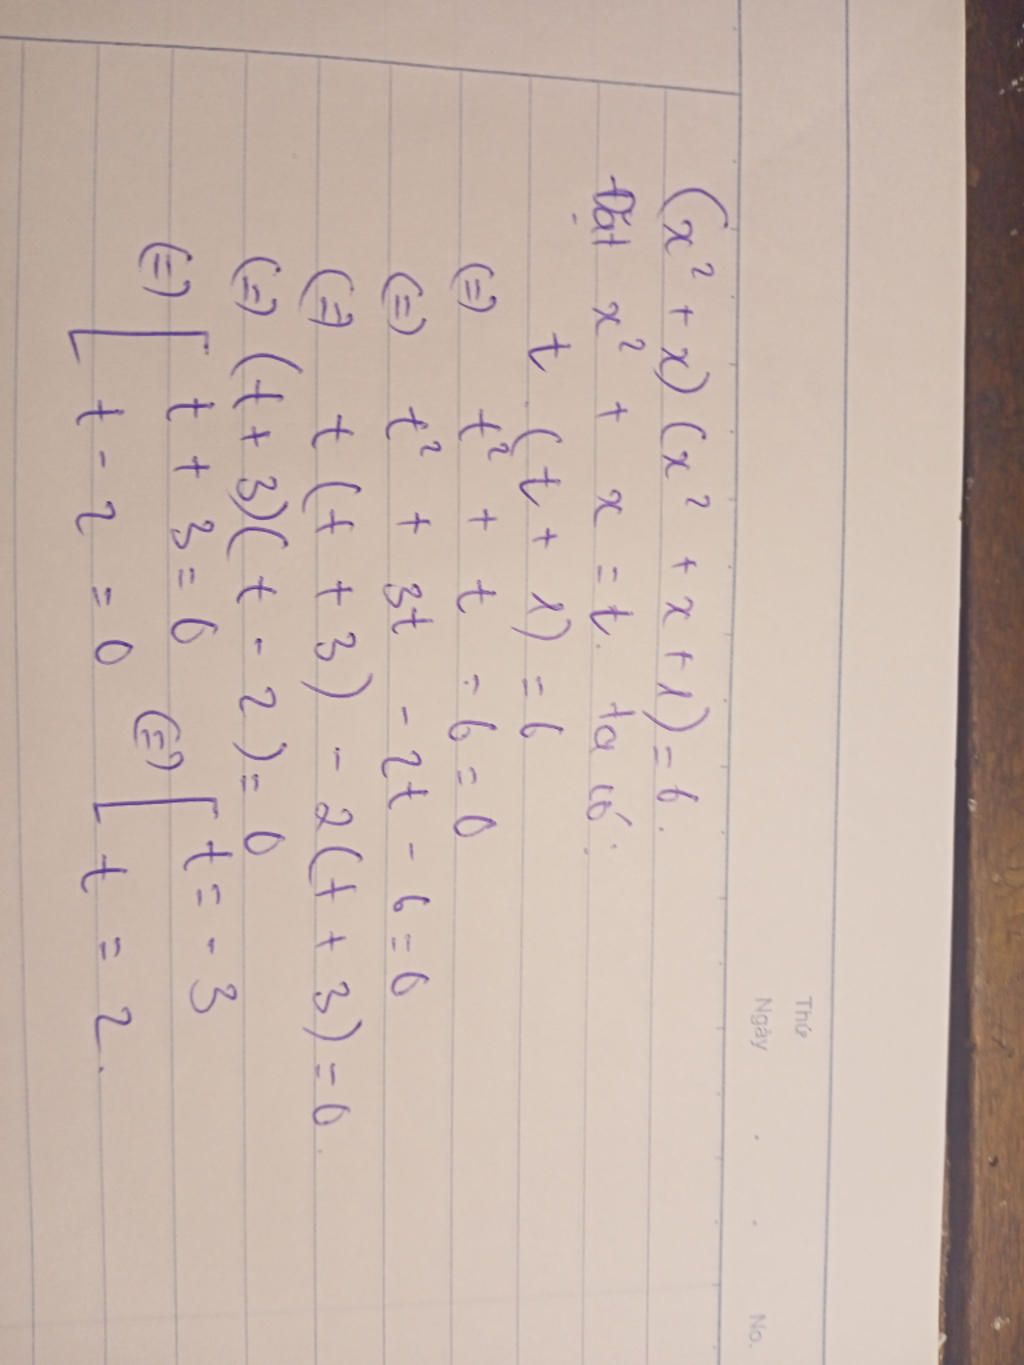 Thứ
Ngày
No.
(x² + x)(x² + x + 1) = 6.
Đặt x² + x = t. ta có:
t.(t + 1) = 6
(=) t² + t - 6 = 0
(=) t² + 3t - 2t - 6 = 0
(=) t(t + 3) - 2(t + 3) = 0.
(=) (t + 3)(t - 2) = 0
(=) [ t + 3 = 0 (=) [ t = - 3
t - 2 = 0 t = 2.